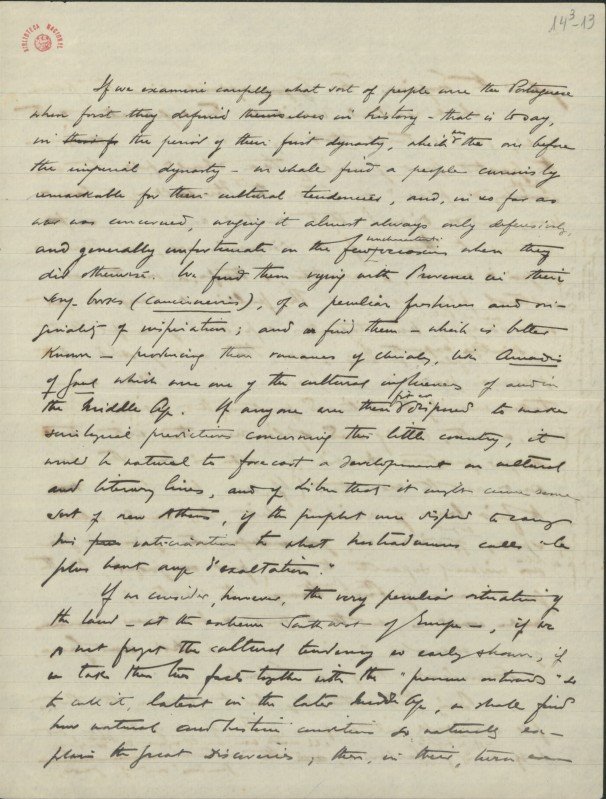 14³-13
BIBLIOTECA NACIONAL
If we examine carefully what sort of people were the Portuguese
when first they defined themselves in history – that is to say,
in the period of their first dynasty, which was the one before
the imperial dynasty – we shall find a people curiously
remarkable for their cultural tendencies, and, in so far as
war was concerned, waging it almost always only defensively,
and generally unfortunate on the few occasions when they
did otherwise. We find them vying with Provence in their
song-books (cancioneiros), of a peculiar freshness and ori-
ginality of inspiration; and we find them – which is better
known – producing those romances of chivalry, like Amadis
of Gaul which were one of the cultural influences of
the Middle Age. If anyone were then disposed to make
sociological predictions concerning this little country, it
would be natural to forecast a development on cultural
and literary lines, and of Lisbon that it might some
sort of new Athens, if the prophet were disposed to carry
his vaticination to what Nostradamus calls "le
plus haut d'exaltation."
If we consider, however, the very peculiar situation of
the land – at the extreme Southwest of Europe –, if we
do not forget the cultural tendency so early shown, if
we take these two facts together with the "pressure outwards" so
to call it, latent in the later Middle Age, we shall find
how natural and historic conditions so naturally ex-
plain the great Discoveries; these, in their turn